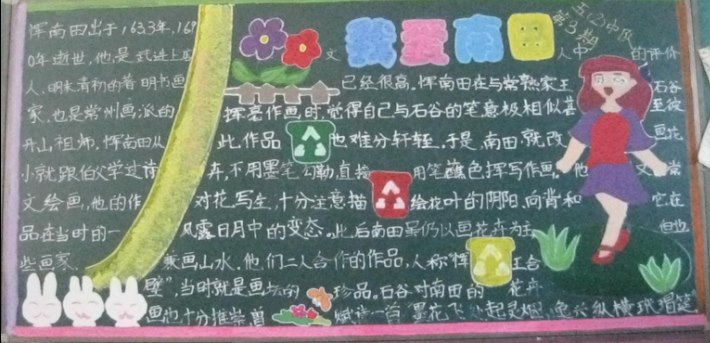 我爱南田
五(2)中队
第3期
恽南田出于1633年,169
0年逝世,他是武进上店
人,明末清初的著明书画
家,也是常州画派的
开山祖师,恽南田从
小就跟伯父学过诗
文绘画,他的作
品在当时的一
些画家
文人中的评价
已经很高。恽南田在与常熟家王石谷
挥毫作画时,觉得自己与石谷的笔意极相似甚至彼
此作品也难分轩轾,于是,南田就改画花
卉,不用墨笔勾勒直接用笔蘸色挥写作画。他又常
对花写生,十分注意描绘花叶的阴阳,向背和它在
风露日月中的变态。此后南田虽仍以画花卉为主但也
兼画山水。他们二人合作的作品,人称恽王合
璧”,当时就是画坛的珍品。石谷对南田的花卉
画也十分推崇,曾赋诗一首“墨花飞起灵烟,逸兴纵横玳瑁筵”